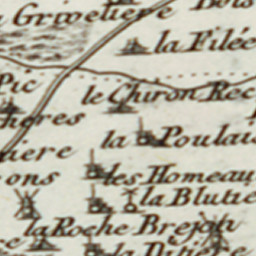 Grivetiere Bois
la Filée
Pic
le Chiron Rec
heres
la Poulai
iere
ons les Homeau
la Blutie
la Roche Brejon
la Ditiere